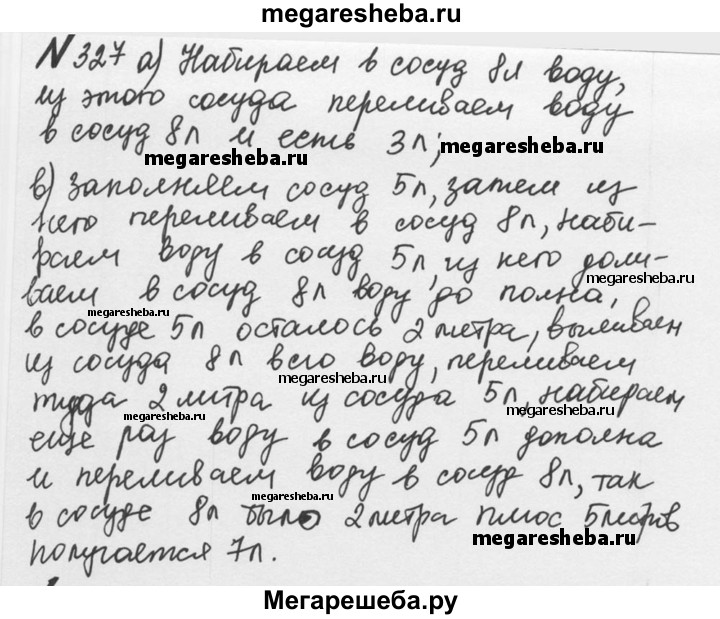 megaresheba.ru
N 327 а) Набираем в сосуд 8л воду,
из этого сосуда переливаем воду
в сосуд 8л и есть 3л;
megaresheba.ru megaresheba.ru
в) Заполняем сосуд 5л, затем из
него переливаем в сосуд 8л, наби-
раем воду в сосуд 5л, из него доли-
megaresheba.ru
ваем в сосуд 8л воду до полна,
megaresheba.ru
в сосуде 5л осталось 2 литра, выливаем
из сосуда 8л всю воду, переливаем
megaresheba.ru
туда 2 литра из сосуда 5л, набираем
megaresheba.ru megaresheba.ru
еще раз воду в сосуд 5л дополна
и переливаем воду в сосуд 8л, так
megaresheba.ru
в сосуде 8л было 2 литра плюс 5 литров
получается 7л.
megaresheba.ru
Мегарешеба.ру